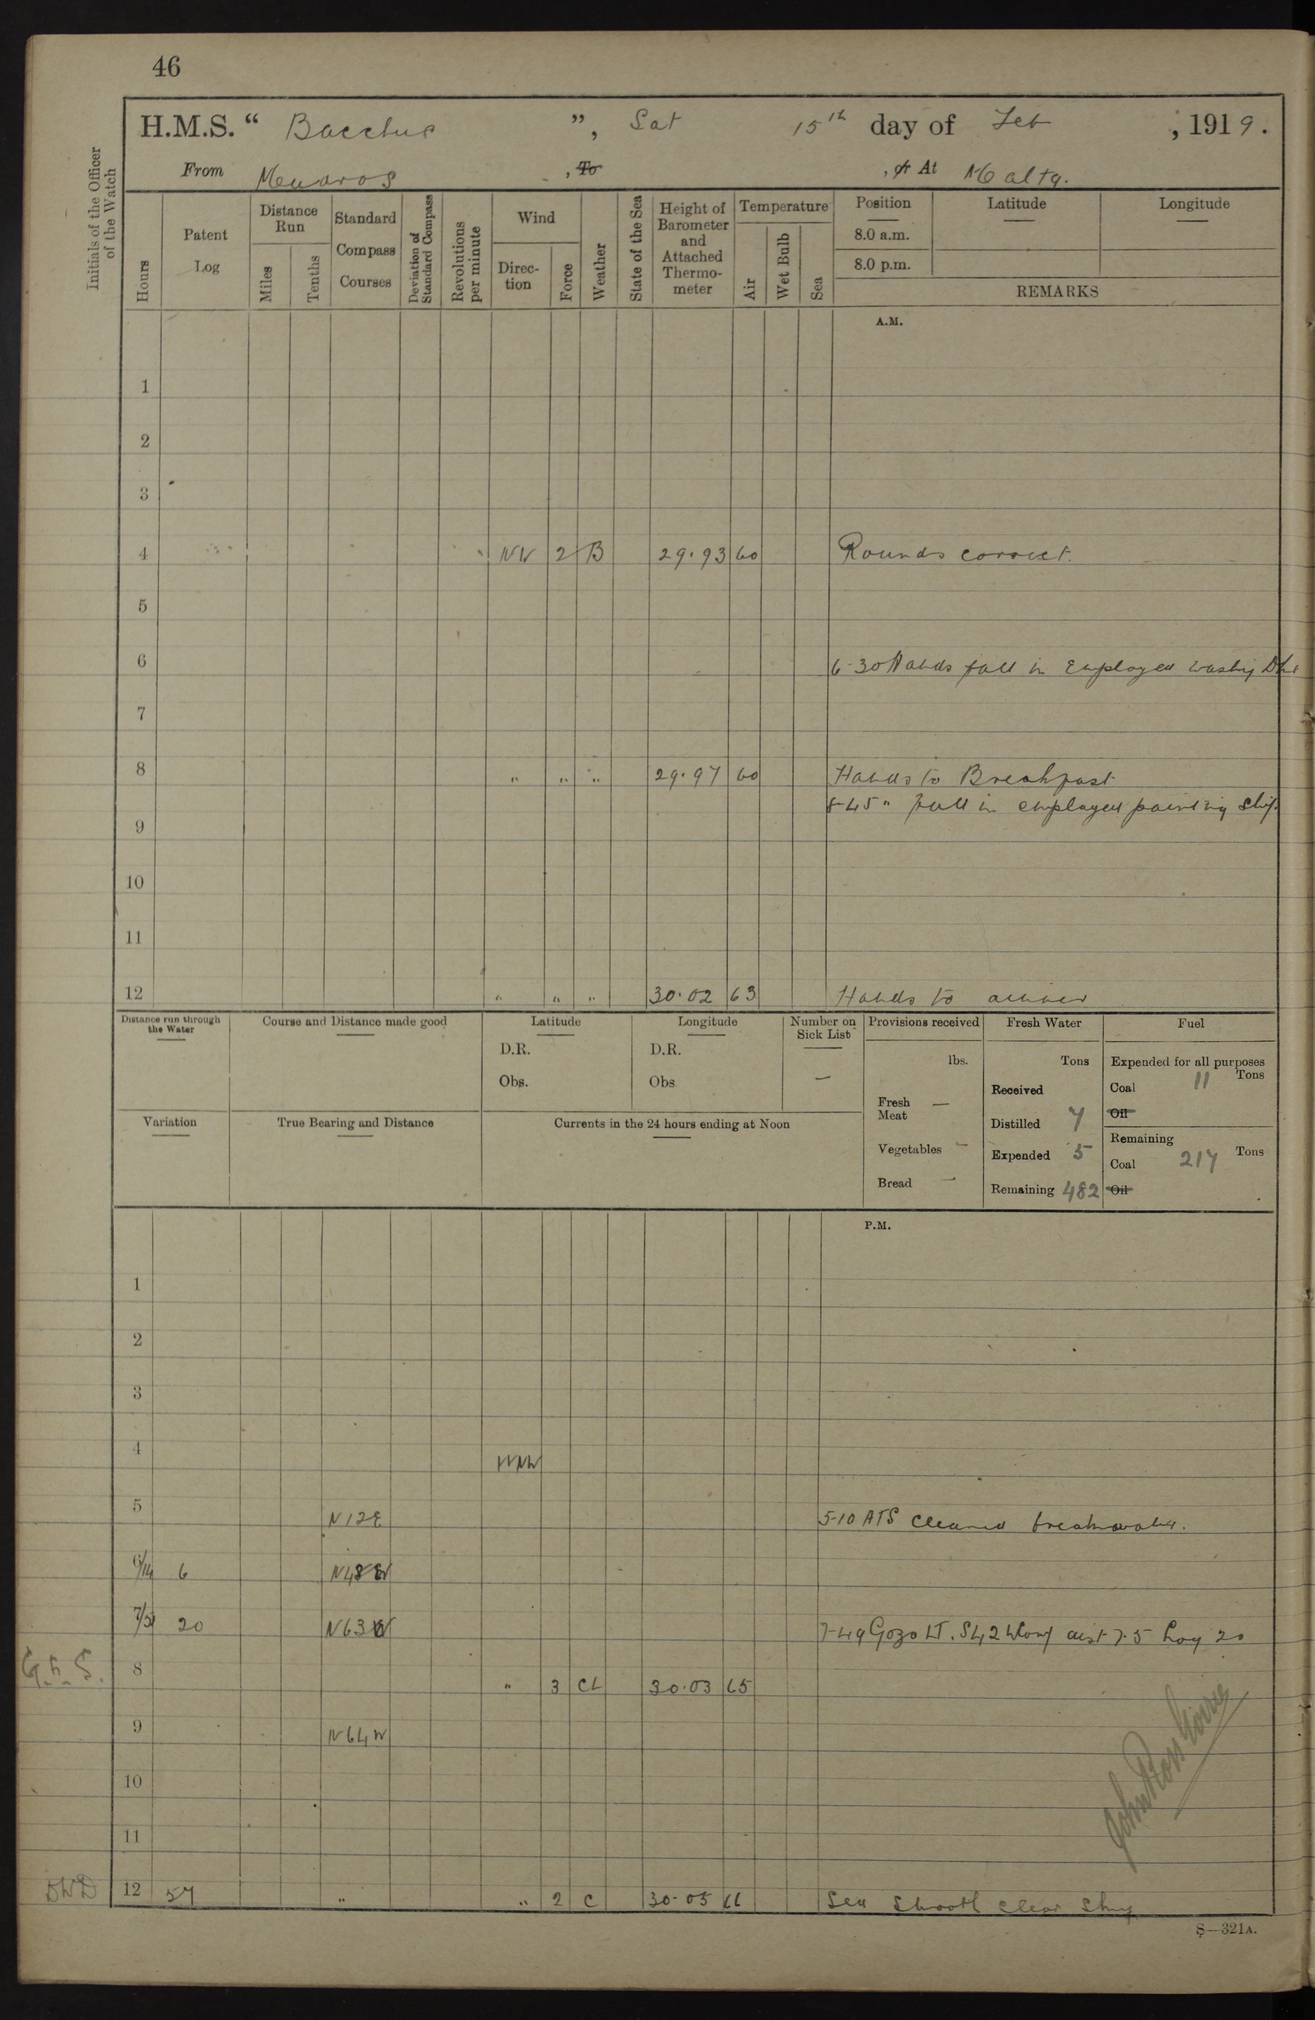 46
H.M.S. “ Bacchus ”, Sat 15th day of Feb , 1919.
From Mudros , To , or At Malta.
Initials of the Officer of the Watch
Hours
Patent Log
Distance Run
Miles
Tenths
Standard Compass Courses
Deviation of Standard Compass
Revolutions per minute
Wind
Direction
Force
Weather
State of the Sea
Height of Barometer and Attached Thermometer
Temperature
Air
Wet Bulb
Sea
Position
8.0 a.m.
8.0 p.m.
Latitude
Longitude
REMARKS
A.M.
1
2
3
4 NW 2 B 29.93 60 Rounds correct.
5
6 6-30 Hands fall in Employed washing
7
8 " " " 29.97 60 Hands to Breakfast
8-45 " fall in employed painting ship.
9
10
11
12 " " " 30.02 63 Hands to dinner
Distance run through the Water
Course and Distance made good
Latitude
D.R.
Obs.
Longitude
D.R.
Obs
Number on Sick List
—
Provisions received
lbs.
Fresh Meat —
Vegetables —
Bread —
Fresh Water
Tons
Received
Distilled 7
Expended 5
Remaining 482
Fuel
Expended for all purposes
Coal 11 Tons
Oil
Remaining
Coal 217 Tons
Oil
Variation
True Bearing and Distance
Currents in the 24 hours ending at Noon
P.M.
1
2
3
4 WNW
5 N12E 5-10 A75 cleared breakwater.
6/14 6 N48W
20 N63W 7-49 Gozo LT. S42W dist 7.5 Log 20
G.F.S. 8 " 3 CL 30.03 65
9 N64W
10
11
John Ross
DWD 12 57 " " 2 C 30.05 66 Sea smooth clear sky
S—321A.